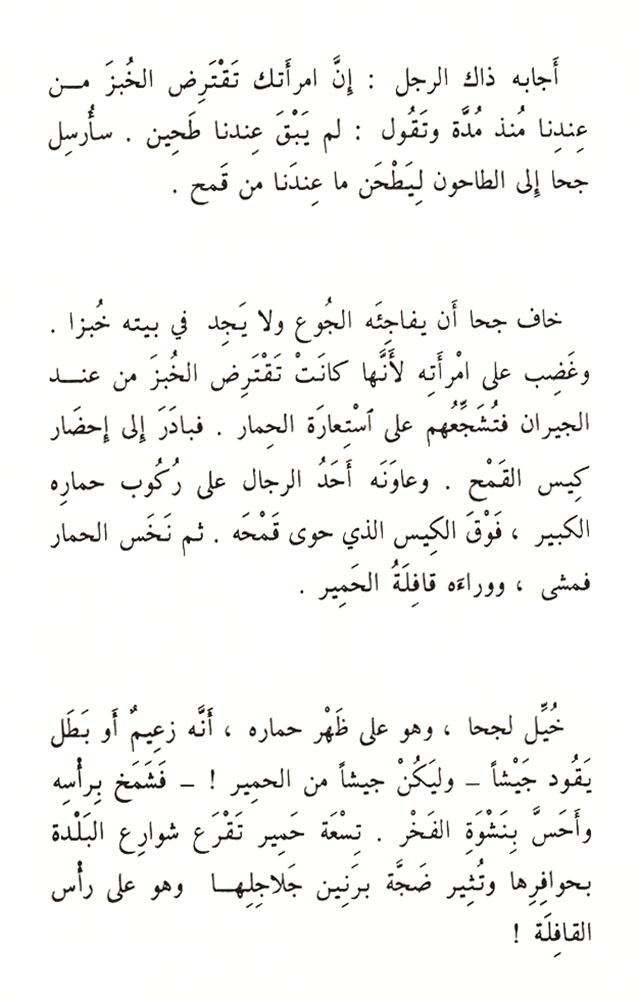 أَجابه ذاك الرجل : إِنَّ امرأَتك تَقْتَرِض الخُبزَ مـن
عِندِنا مُنذ مُدَّة وتَقُول : لم يَبْقَ عِندنا طَحِين . سأُرسِل
جحا إِلى الطاحون لِيَطْحَن ما عِندَنا من قَمح .
خاف جحا أَن يفاجِئَه الجُوع ولا يَجِد في بيته خُبزا .
وغَضِب على امْرأَتِه لأَنَّها كانَتْ تَقْتَرِض الخُبزَ من عنـد
الجيران فتُشَجِّعُهم على ٱسْتِعارَة الحِمار . فبادَرَ إِلى إِحضَار
كِيس القَمْح . وعاوَنَه أَحَدُ الرجال على رُكُوب حمارِه
الكبير ، فَوْقَ الكِيس الذي حوى قَمْحَه . ثم نَخَس الحمار
فمشى ، ووراءَه قافِلَةُ الحَمِير .
خُيِّل لجحا ، وهو على ظَهْر حماره ، أَنَّه زعِيمٌ أَو بَطَل
يَقُود جَيْشاً – وليَكُنْ جيشاً من الحمِير ! – فَشَمَخ بِرأْسِه
وأَحَسَّ بِنَشْوَةِ الفَخْر . تِسْعَة حَمِير تَقْرَع شوارِع البَلْدة
بحوافِرِها وتُثِير ضَجَّة برَنِين جَلاجِلِهـا وهو على رأْس
القافِلَة !